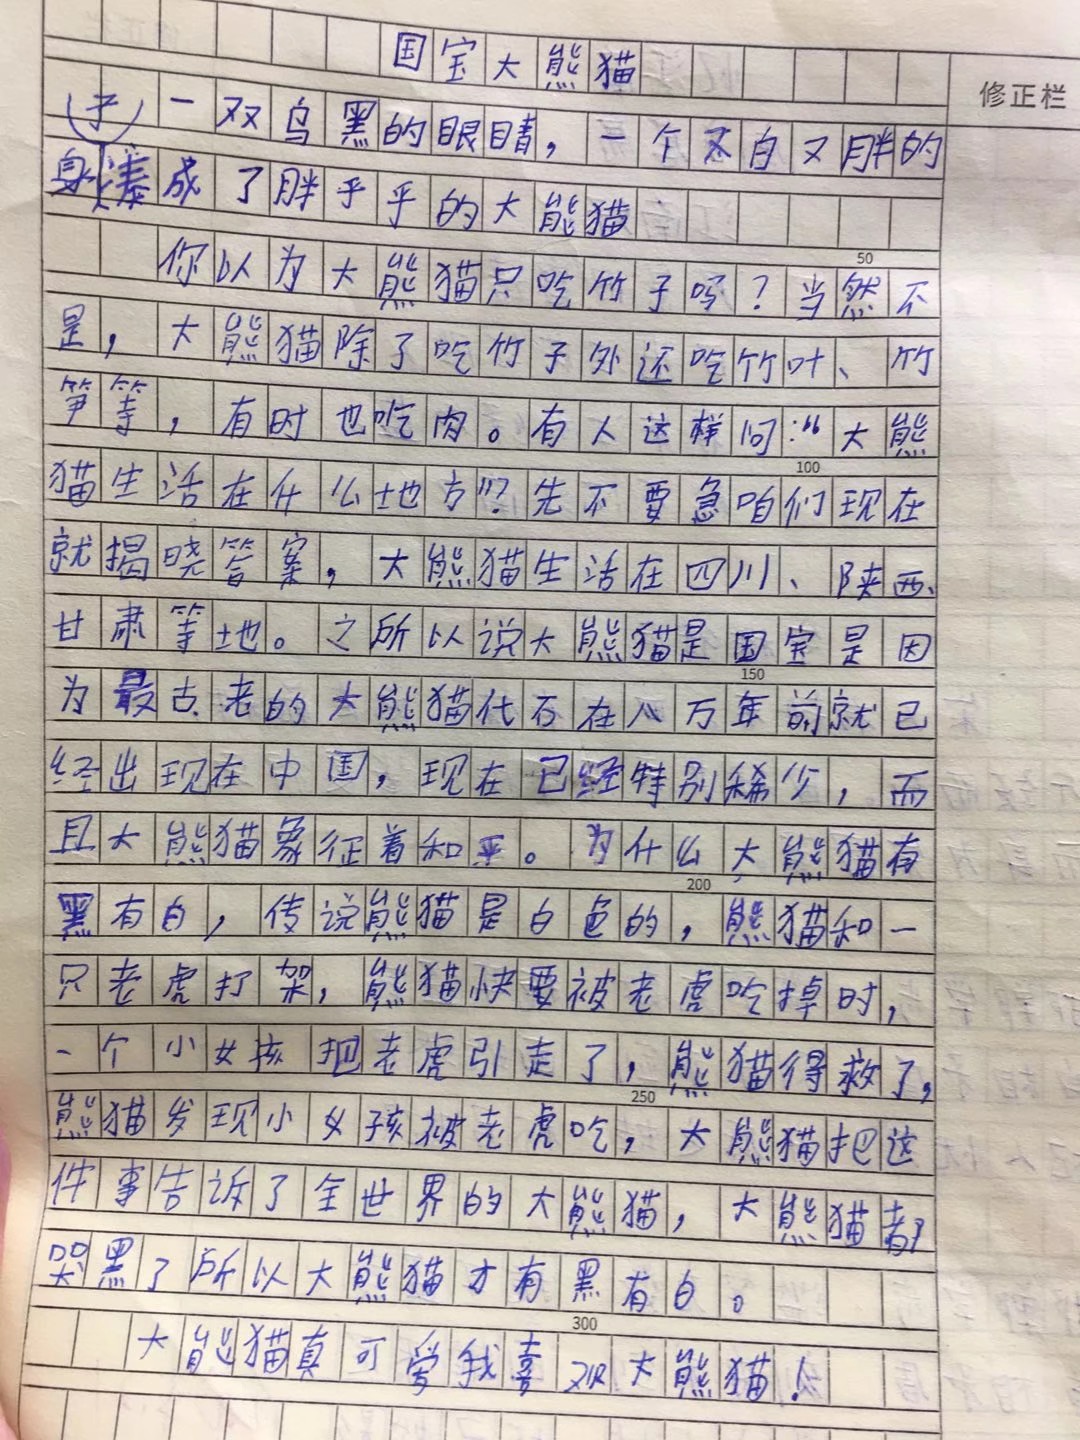 国宝大熊猫
修正栏
(子)一双乌黑的眼睛，一个又白又胖的
身凑成了胖乎乎的大熊猫
50
你以为大熊猫只吃竹子吗？当然不
是，大熊猫除了吃竹子外还吃竹叶、竹
笋等，有时也吃肉。有人这样问：“大熊
100
猫生活在什么地方”？先不要急咱们现在
就揭晓答案，大熊猫生活在四川、陕西、
甘肃等地。之所以说大熊猫是国宝是因
150
为最古老的大熊猫代石在八万年前就已
经出现在中国，现在已经特别稀少，而
且大熊猫象征着和平。为什么大熊猫有
200
黑有白，传说熊猫是白色的，熊猫和一
只老虎打架，熊猫快要被老虎吃掉时，
一个小女孩把老虎引走了，熊猫得救了，
250
熊猫发现小女孩被老虎吃，大熊猫把这
件事告诉了全世界的大熊猫，大熊猫都
哭黑了所以大熊猫才有黑有白。
300
大熊猫真可爱我喜欢大熊猫！